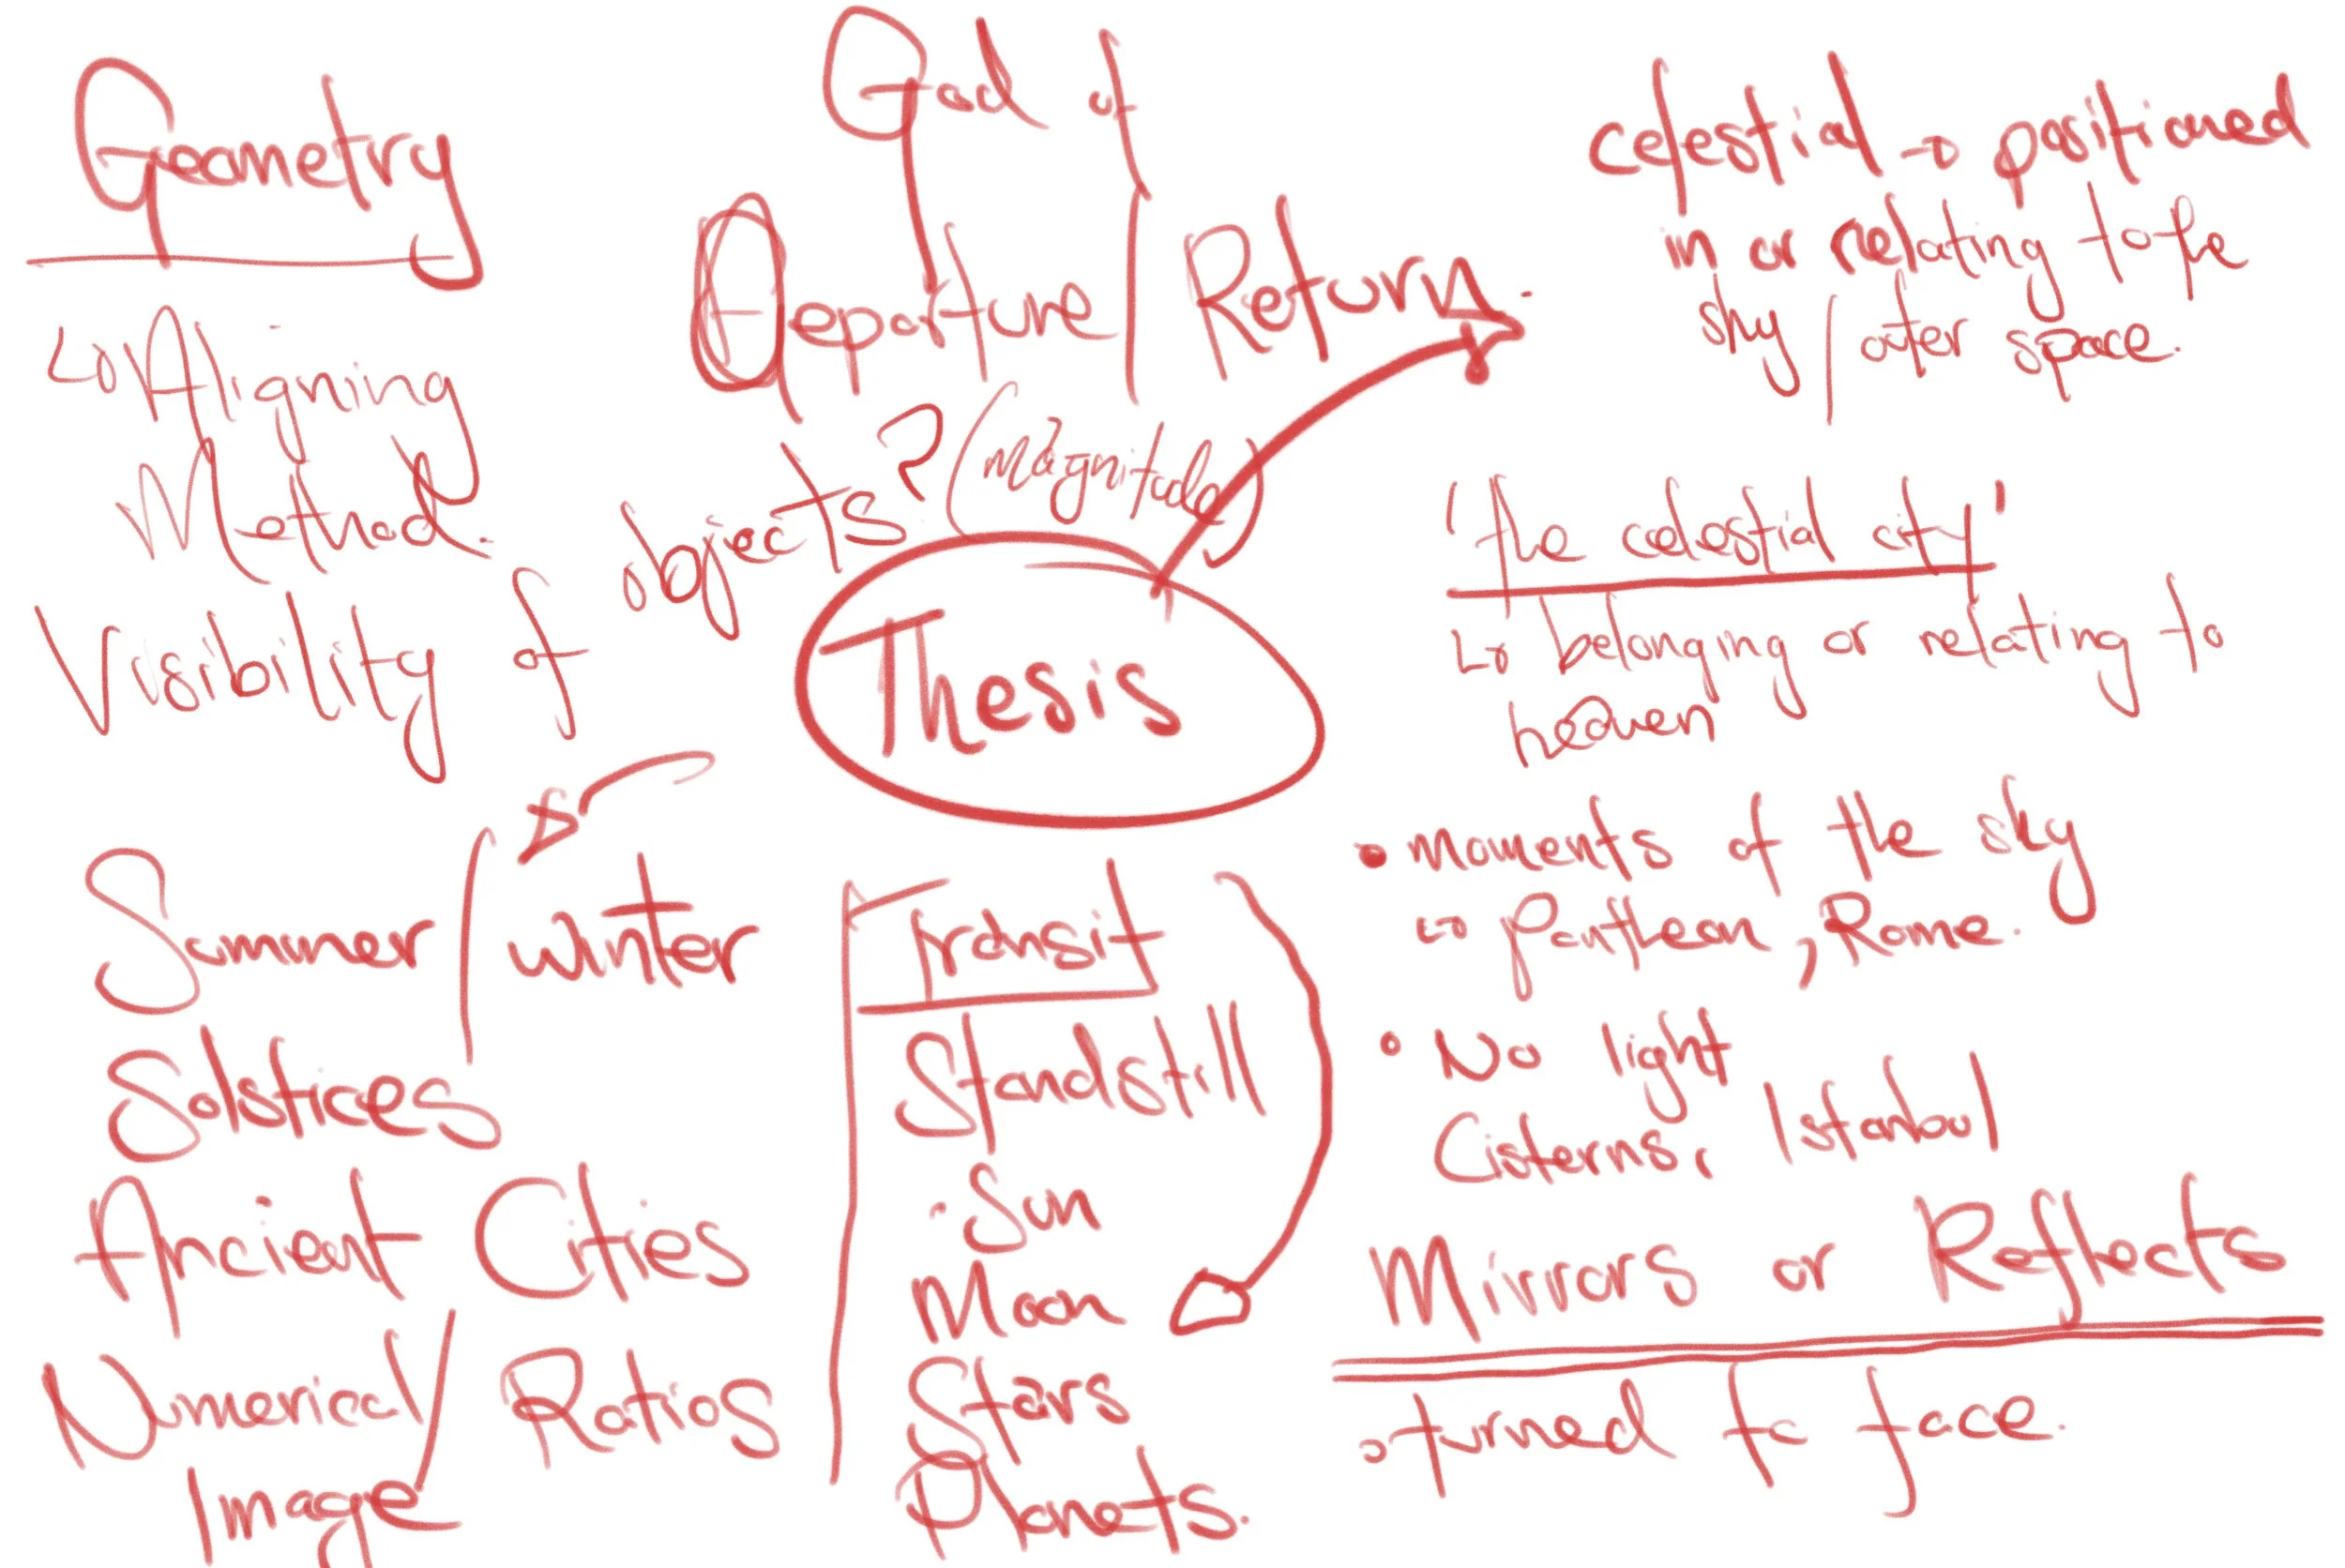 Geometry
↳ Aligning
Method.
Visibility of objects? (Magnitude)
Summer / winter
Solstices
Ancient Cities
Numerical / Ratios
Image
God of
Departure / Return.
Thesis
Transit
Standstill
• Sun
Moon
Stars
Planets.
celestial → positioned
in or relating to the
sky / outer space.
'the celestial city'
↳ belonging or relating to
heaven
• Moments of the sky
↳ Pantheon, Rome.
• No light
Cisterns, Istanbul
Mirrors or Reflects
• turned to face.